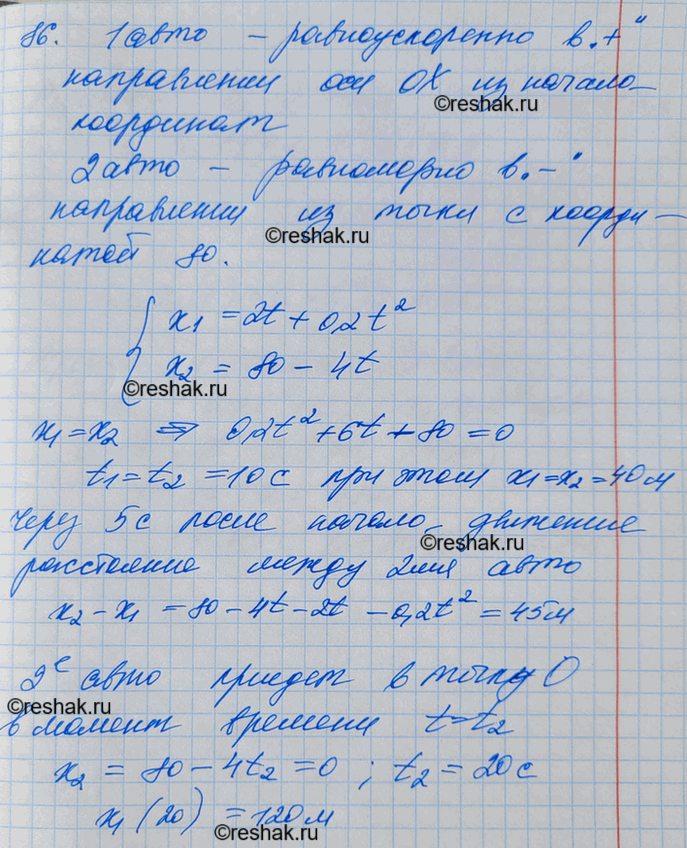 86. 1 авто – равноускоренно в „+"
направлении оси OX из начала
©reshak.ru
координат
2 авто – равномерно в „–"
направлении из точки с коорди–
©reshak.ru
натой 80.
x1 = 2t + 0,2t²
x2 = 80 – 4t
©reshak.ru
x1 = x2 ⇒ 0,2t² + 6t + 80 = 0
t1 = t2 = 10 с при этом x1 = x2 = 40 м
Через 5 с после начала движение
©reshak.ru
расстояние между 2мя авто
x2 – x1 = 80 – 4t – 2t – 0,2t² = 45 м
2е авто придет в точку O
©reshak.ru
в момент времени t = t2
x2 = 80 – 4t2 = 0 ; t2 = 20 с
x1 (20) = 120 м
©reshak.ru